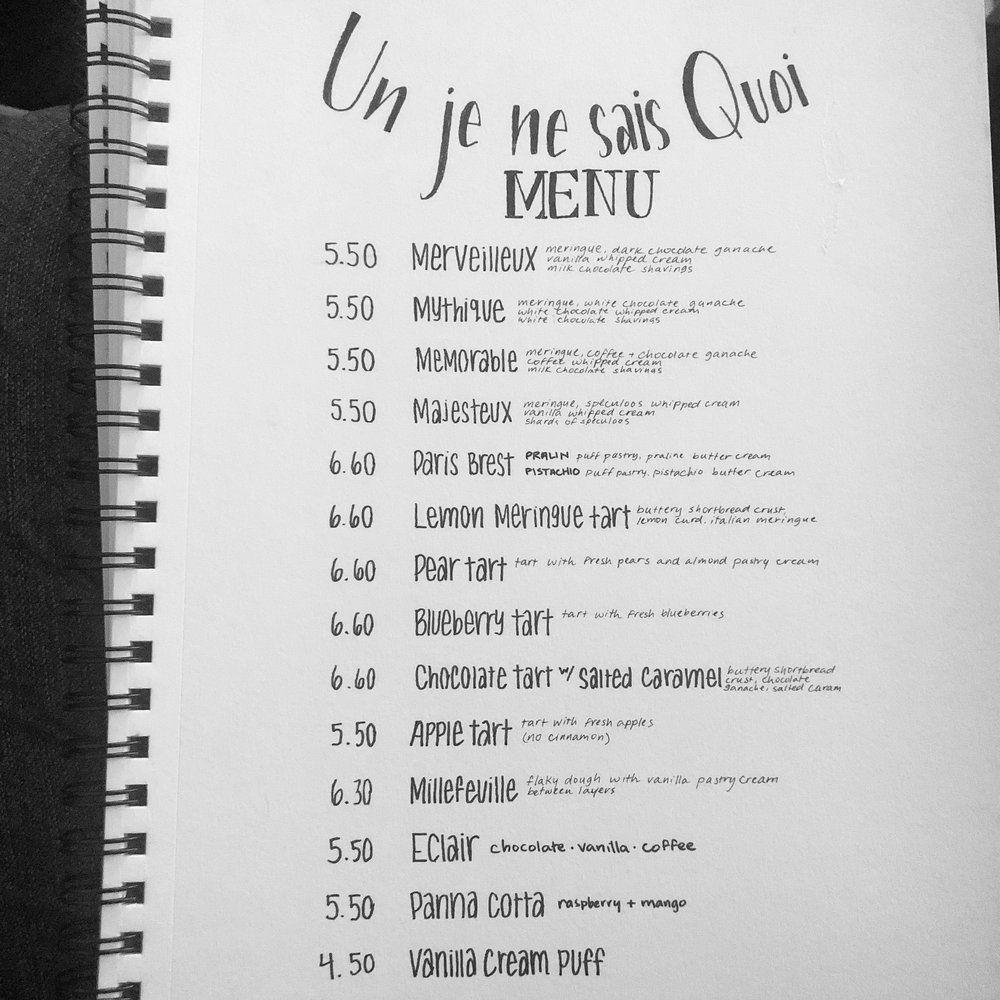 Un je ne sais Quoi
MENU
5.50 Merveilleux meringue, dark chocolate ganache
vanilla whipped cream
milk chocolate shavings
5.50 Mythique meringue, white chocolate ganache
white chocolate whipped cream
white chocolate shavings
5.50 Memorable meringue, coffee + chocolate ganache
coffee whipped cream
milk chocolate shavings
5.50 Majesteux meringue, spéculoos whipped cream
vanilla whipped cream
shards of spéculoos
6.60 Paris Brest PRALIN puff pastry, praline butter cream
PISTACHIO puff pastry, pistachio butter cream
6.60 Lemon Meringue tart buttery shortbread crust,
lemon curd, italian meringue
6.60 Pear tart tart with fresh pears and almond pastry cream
6.60 Blueberry tart tart with fresh blueberries
6.60 Chocolate tart w/ salted caramel buttery shortbread
crust, chocolate
ganache, salted caram
5.50 Apple tart tart with fresh apples
(no cinnamon)
6.30 Millefeuille flaky dough with vanilla pastry cream
between layers
5.50 Eclair chocolate · vanilla · coffee
5.50 Panna cotta raspberry + mango
4.50 Vanilla Cream puff